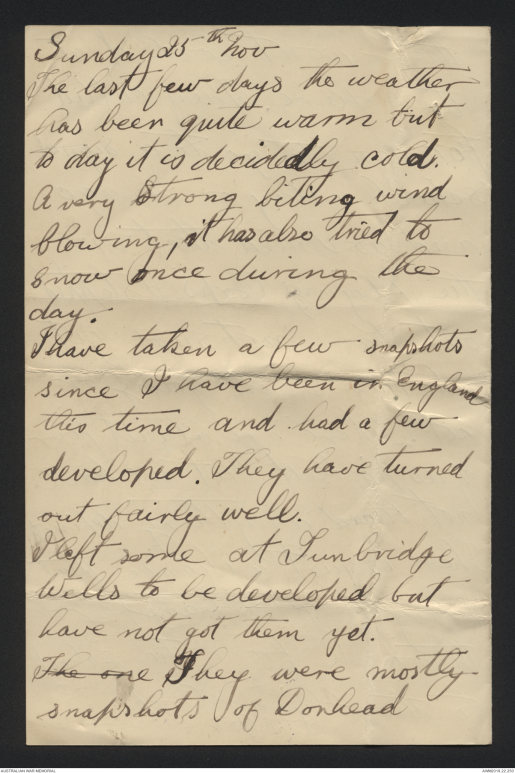 Sunday 25th Nov
The last few days the weather
has been quite warm but
to day it is decidedly cold.
A very strong biting wind
blowing, it has also tried to
snow once during the
day.
I have taken a few snapshots
since I have been in England
this time and had a few
developed. They have turned
out fairly well.
I left some at Tunbridge
Wells to be developed but
have not got them yet.
The one They were mostly
snapshots of Donhead
AUSTRALIAN WAR MEMORIAL